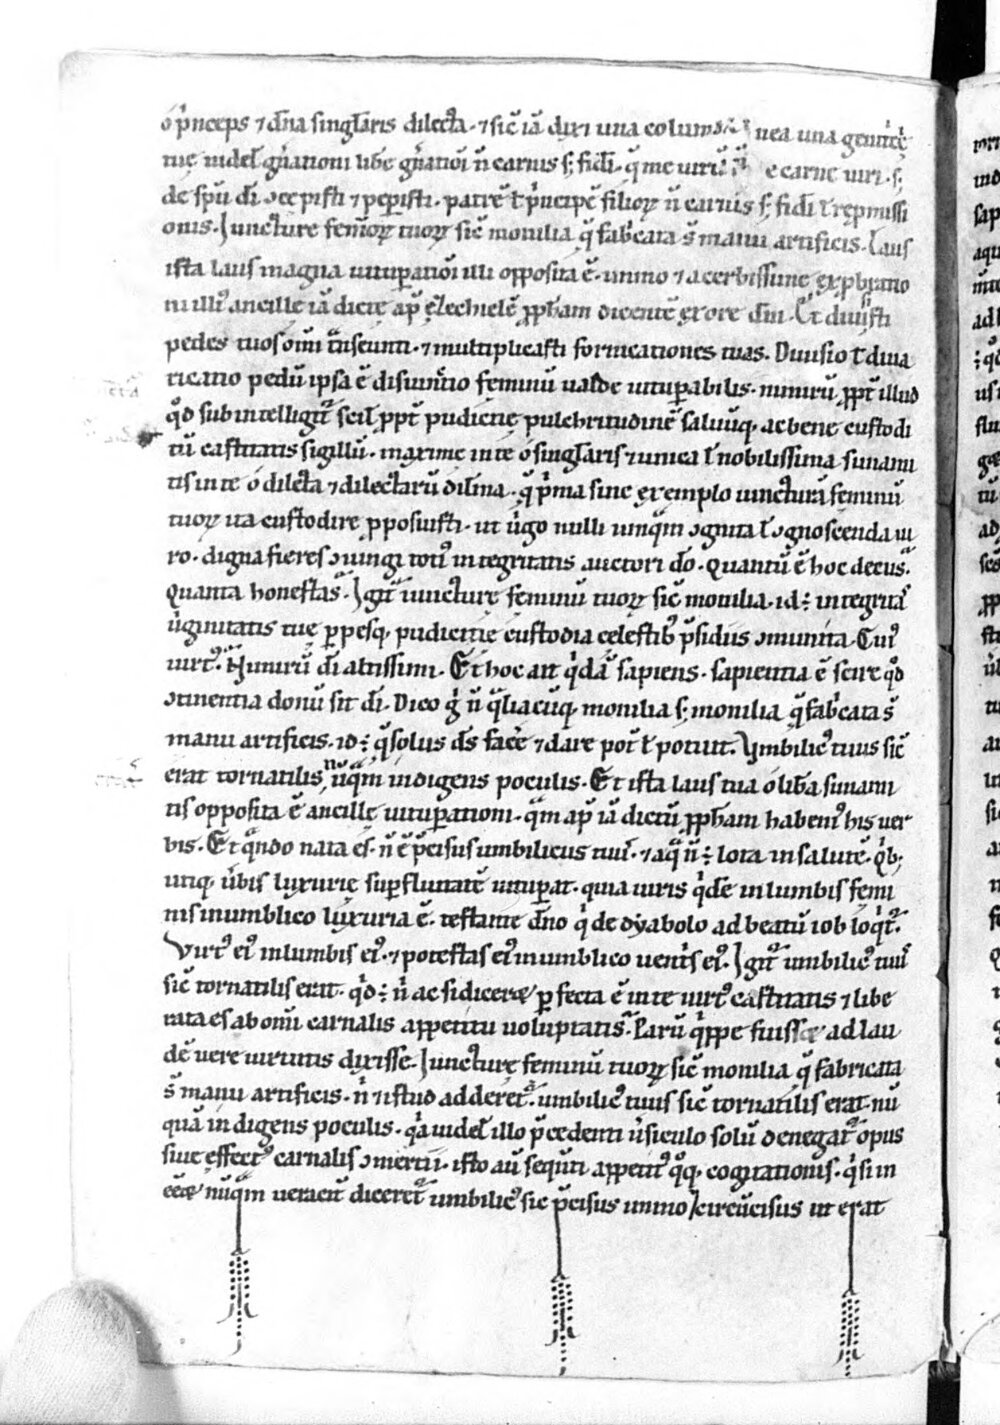 o p̾nceps ⁊ dn̄a singl̄aris dilecta · ⁊ sic̄ iā dixi una colum nea una genit̾c̾
de sp̄u dī ↄcepisti ⁊ pep̄isti · patrē ł p̾ncipē filioꝝ n̄ carnis sꝫ fidī ł rep̄missi
onis · Iuncture femoꝝ tuoꝝ sic̄ monilia q̄ fab̾cata s̄ manu artificis · Laus
ista laus magna uitup̄ationi illi opposita ē · immo ⁊ acerbissime exp̄bratio
ni illi᾽ ancille iā dicte ap̄ ezechielē ꝓph̄am dicentē ex ore dn̄i · Et diuisisti
pedes tuos om̄i t̄nseunti · ⁊ multiplicasti fornicationes tuas · Diuisio ł diua
ricatio pedū ipsa ē disiunctio feminū ualde uitup̄abilis · nimirū ꝓpt̾ illud
qd̄ subintelligit᾽ scil̄ ꝓpt̾ pudicitię pulchritudinē saluāq · ac bene custodi
tū castitatis sigillū · maxime in te o singl̄aris ⁊ unica ł nobilissima sunami
tis in te o dilecta ⁊ dilectarū dn̄a · q̄ p̾ma sine exemplo iuncturā feminū
tuoꝝ ita custodire ꝓposuisti · ut u̾go nulli unq̄m ↄgnita ł ↄgnoscenda ui
ro · digna fieres ↄiungi toti᾽ integritatis auctori dō · Quantū ē hoc decus ·
Quanta honestas · Igit᾽ iuncture feminū tuoꝝ sic̄ monilia · id ÷ integritas
u̾ginitatis tuę ꝑpesq · pudicitię custodia celestib᾽ p̄sidiis ↄmunita · Cui᾽
uirt᾽ · Nimirū dī altissimi · Et hoc ait q̾dā sapiens · sapientia ē scire qd̄
ↄtinentia donū sit dī · Dico g̾ n̄ q̄liacūq · monilia sꝫ monilia q̄ fab̾cata s̄
manu artificis · id ÷ q̄ solus ds̄ face̾ ⁊ dare pot̄ ł potuit · Umbilic᾽ tuus sic̄
erat tornatilis nūq̄m indigens poculis · Et ista laus tua o lib̾a sunami
tis opposita ē ancillę uitup̄ationi · q̄m ap̄ iā dictū ꝓph̄am habem᾽ his uer
bis · Et q̄ndo nata es · n̄ ē p̄cisus umbilicus tuus · ⁊ aq̄ n̄ ÷ lota in salutē · Q̾bꝫ
utiq · u̾bis luxurię sup̄fluitatē uitup̄at · quia uiris q̾dē in lumbis femi
nis in umblico luxuria ē · testante dn̄o q̾ de dyabolo ad beatū iob loq̾t᾽ ·
Virt᾽ ei᾽ in lumbis ei᾽ · ⁊ potestas ei᾽ in umblico uent̾s ei᾽ · Igit᾽ umbilic᾽ tuus
sic̄ tornatilis erat · qd̄ ÷ n̄ ac si diceret ꝑfecta ē in te uirt᾽ castitatis ⁊ libe
rata es ab om̄i carnalis appetitu uoluptatis · Parū q̾ppe fuisset ad lau
dē uere uirtutis dixisse · Iuncture feminū tuoꝝ sic̄ monilia q̄ fabricata
s̄ manu artificis · n̄ ⁊ istud adderet᾽ · umbilic᾽ tuus sic̄ tornatilis erat nū
quā indigens poculis · q̾a uidel̄ illo p̄cedenti u̾siculo solū denegat᾽ opus
siue effect᾽ carnalis ↄmertii · isto aū seqūti appetit᾽ q̊q · cogitationis · q̾ si in
eēt nūq̄m ueracit̾ diceret᾽ umbilic᾽ sic p̄cisus immo circūcisus ut erat